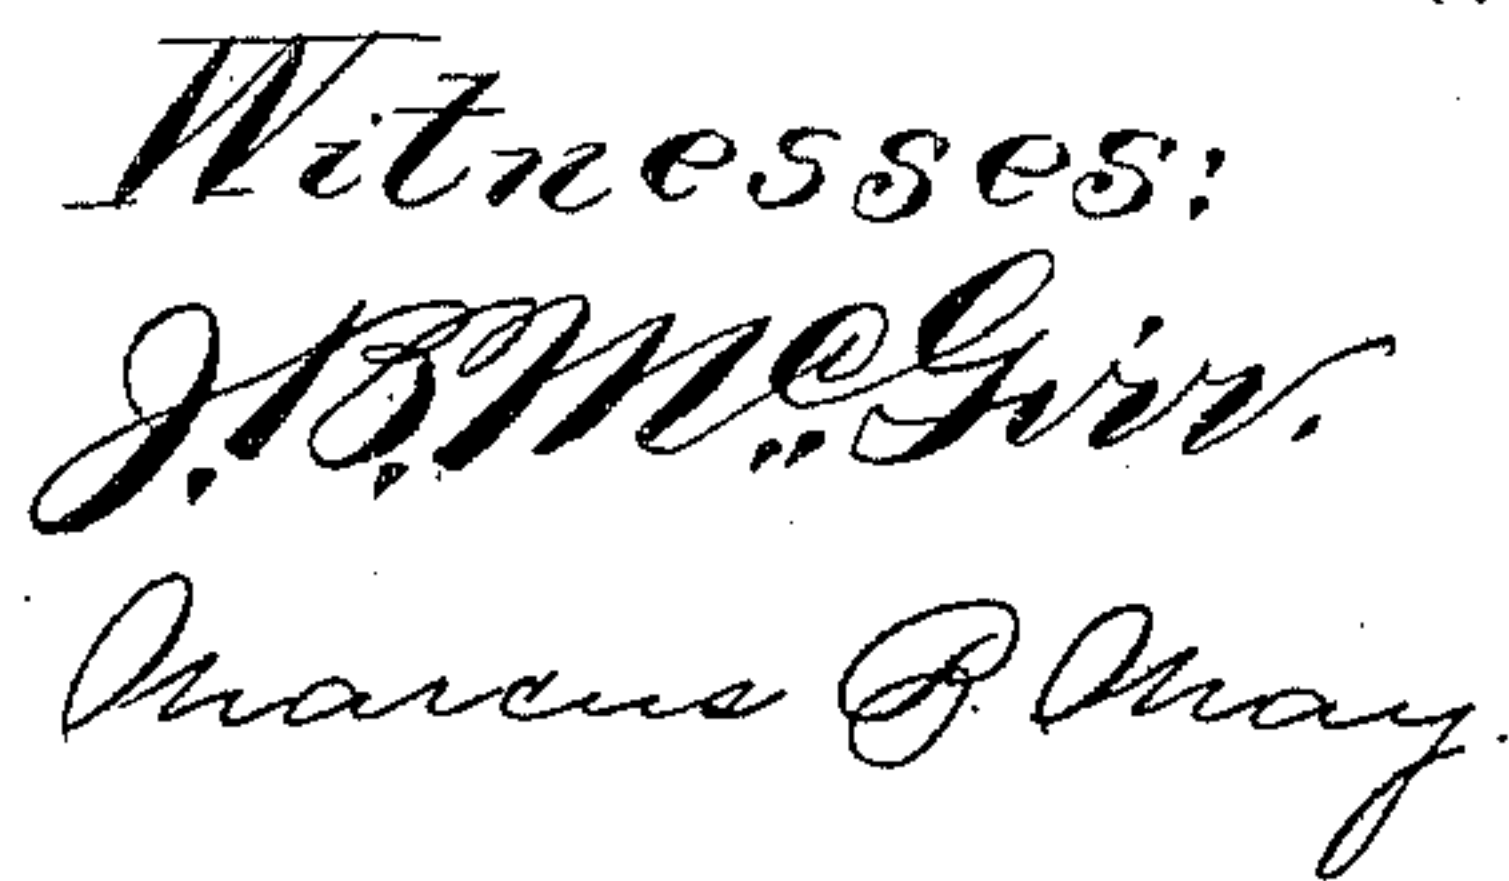 Witnesses:
J. B. McGirr.
Marcus B. May.